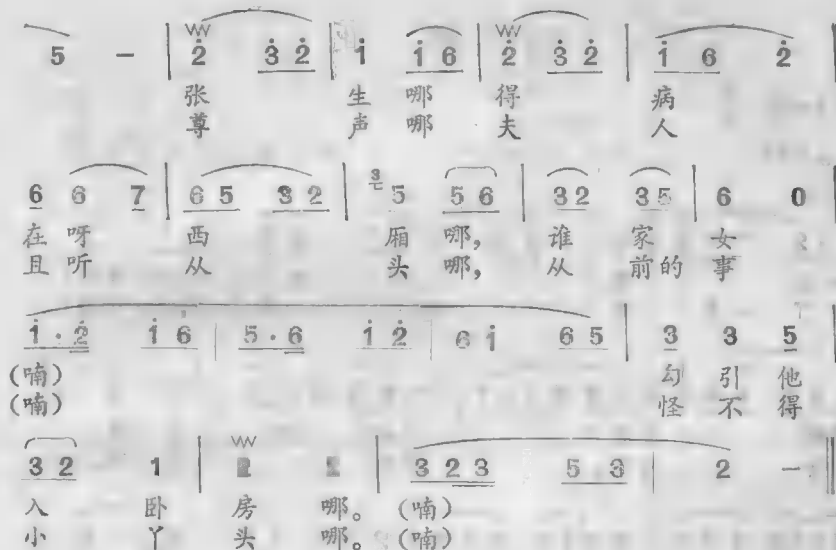 5 - | 2 3 2 | 1 1 6 | 2 3 2 | 1 6 2 |
张 生 哪 得 病
尊 声 哪 夫 人
6 6 7 | 6 5 3 2 | 5 5 6 | 3 2 3 5 | 6 0
在 呀 西 厢 哪, 谁 家 女
且 听 从 头 哪, 从 前 的 事
1 · 2 1 6 | 5 · 6 1 2 | 6 1 6 5 | 3 3 5 |
(喃) 勾 引 他
(喃) 怪 不 得
3 2 1 | | 3 2 3 5 3 | 2 - ‖
入 卧 房 哪。 (喃)
小 丫 头 哪。 (喃)